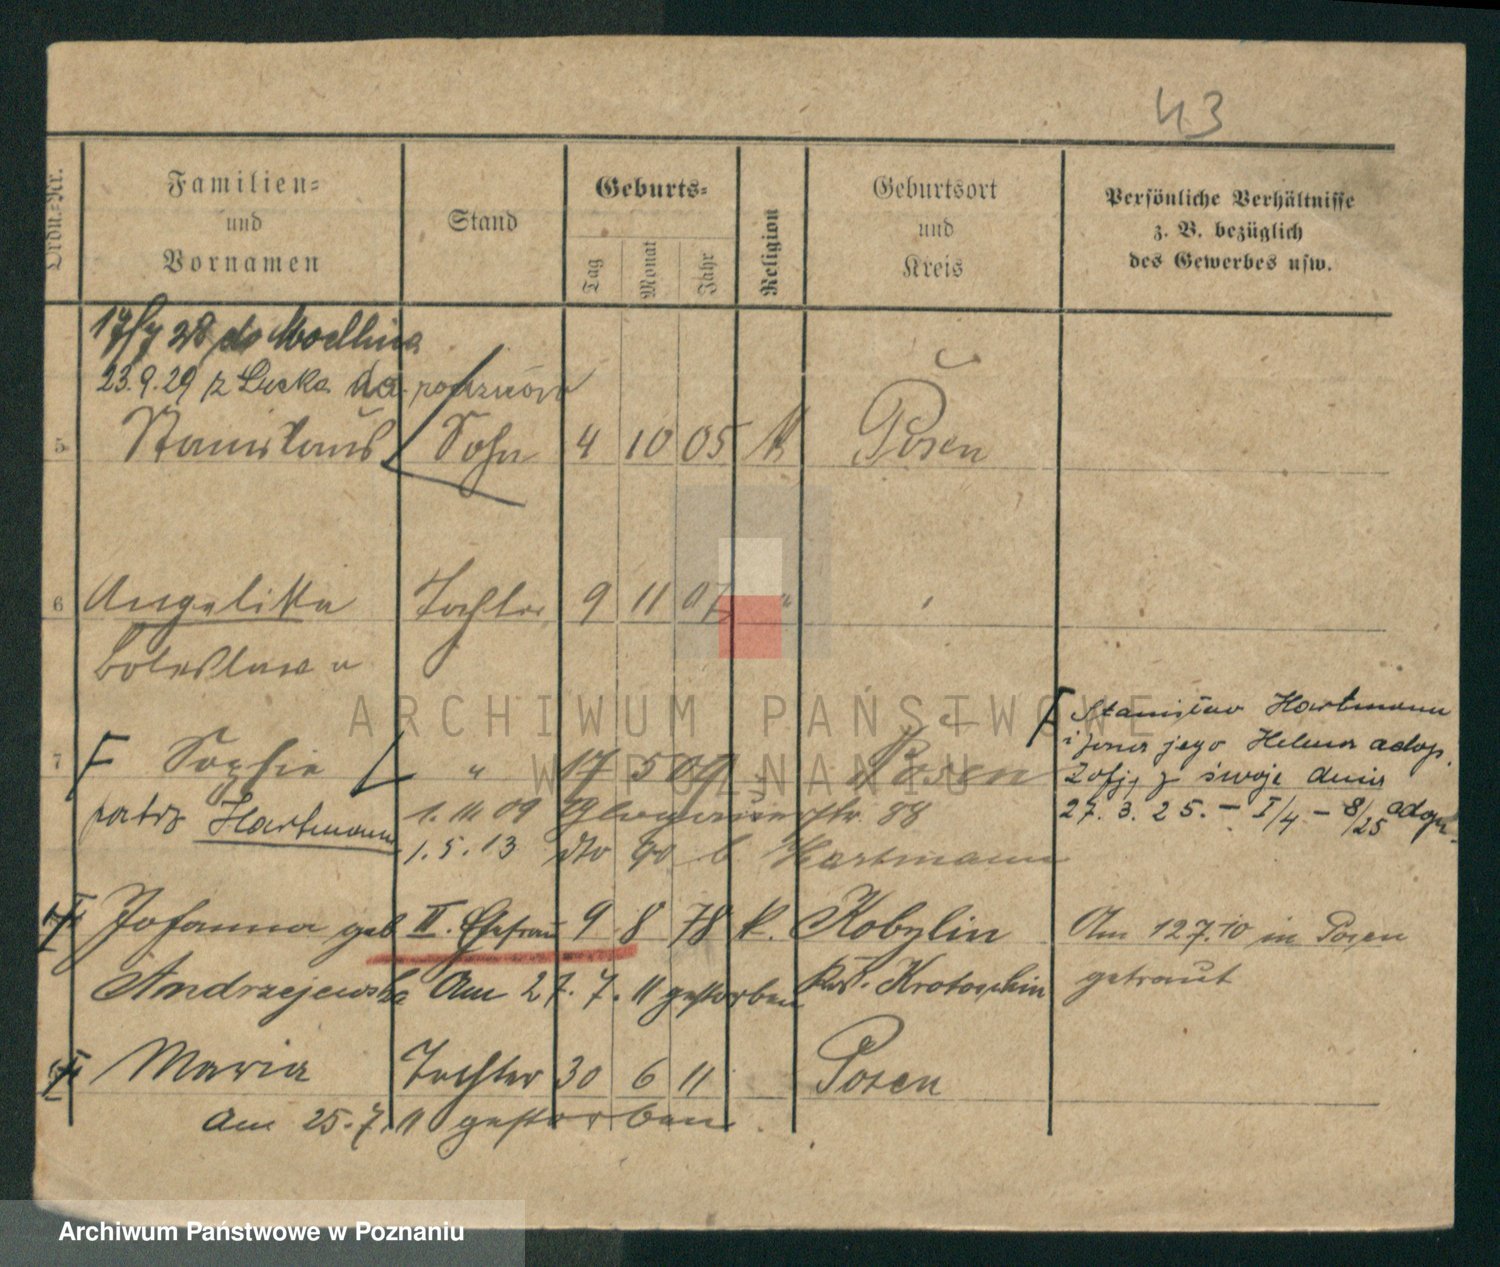 43
Ordn.-Nr.
Familien-
und
Vornamen
Stand
Geburts-
Tag
Monat
Jahr
Religion
Geburtsort
und
Kreis
Persönliche Verhältnisse
z. B. bezüglich
des Gewerbes usw.
17/7 28 do Modlina
23.9.29 z Łucka do
5 Stanislaus Sohn 4 10 05 K Posen
6 Angelika Tochter 9 11 07 " "
Boleslawa
7 F Sophie " 17 5 09 Posen
patrz Hartmann
1. 11 09 Glogauerstr. 88
1. 5. 13 dto 90 b Hartmann
F Stanisław Hartmann
i żona jego Helena adop.
Zofję za swoje dnia
27. 3. 25. – I/4 – 8/25 adop.
Johanna geb. II. Ehefrau 9 8 78 k. Kobylin Am 12.7.10 in Posen
Andrzejewska Am 27. 7. 11 gestorben Krs. Krotoschin getraut
Maria Tochter 30 6 11 Posen
Am 25. 7. 11 gestorben.
ARCHIWUM PAŃSTWOWE
W POZNANIU
Archiwum Państwowe w Poznaniu